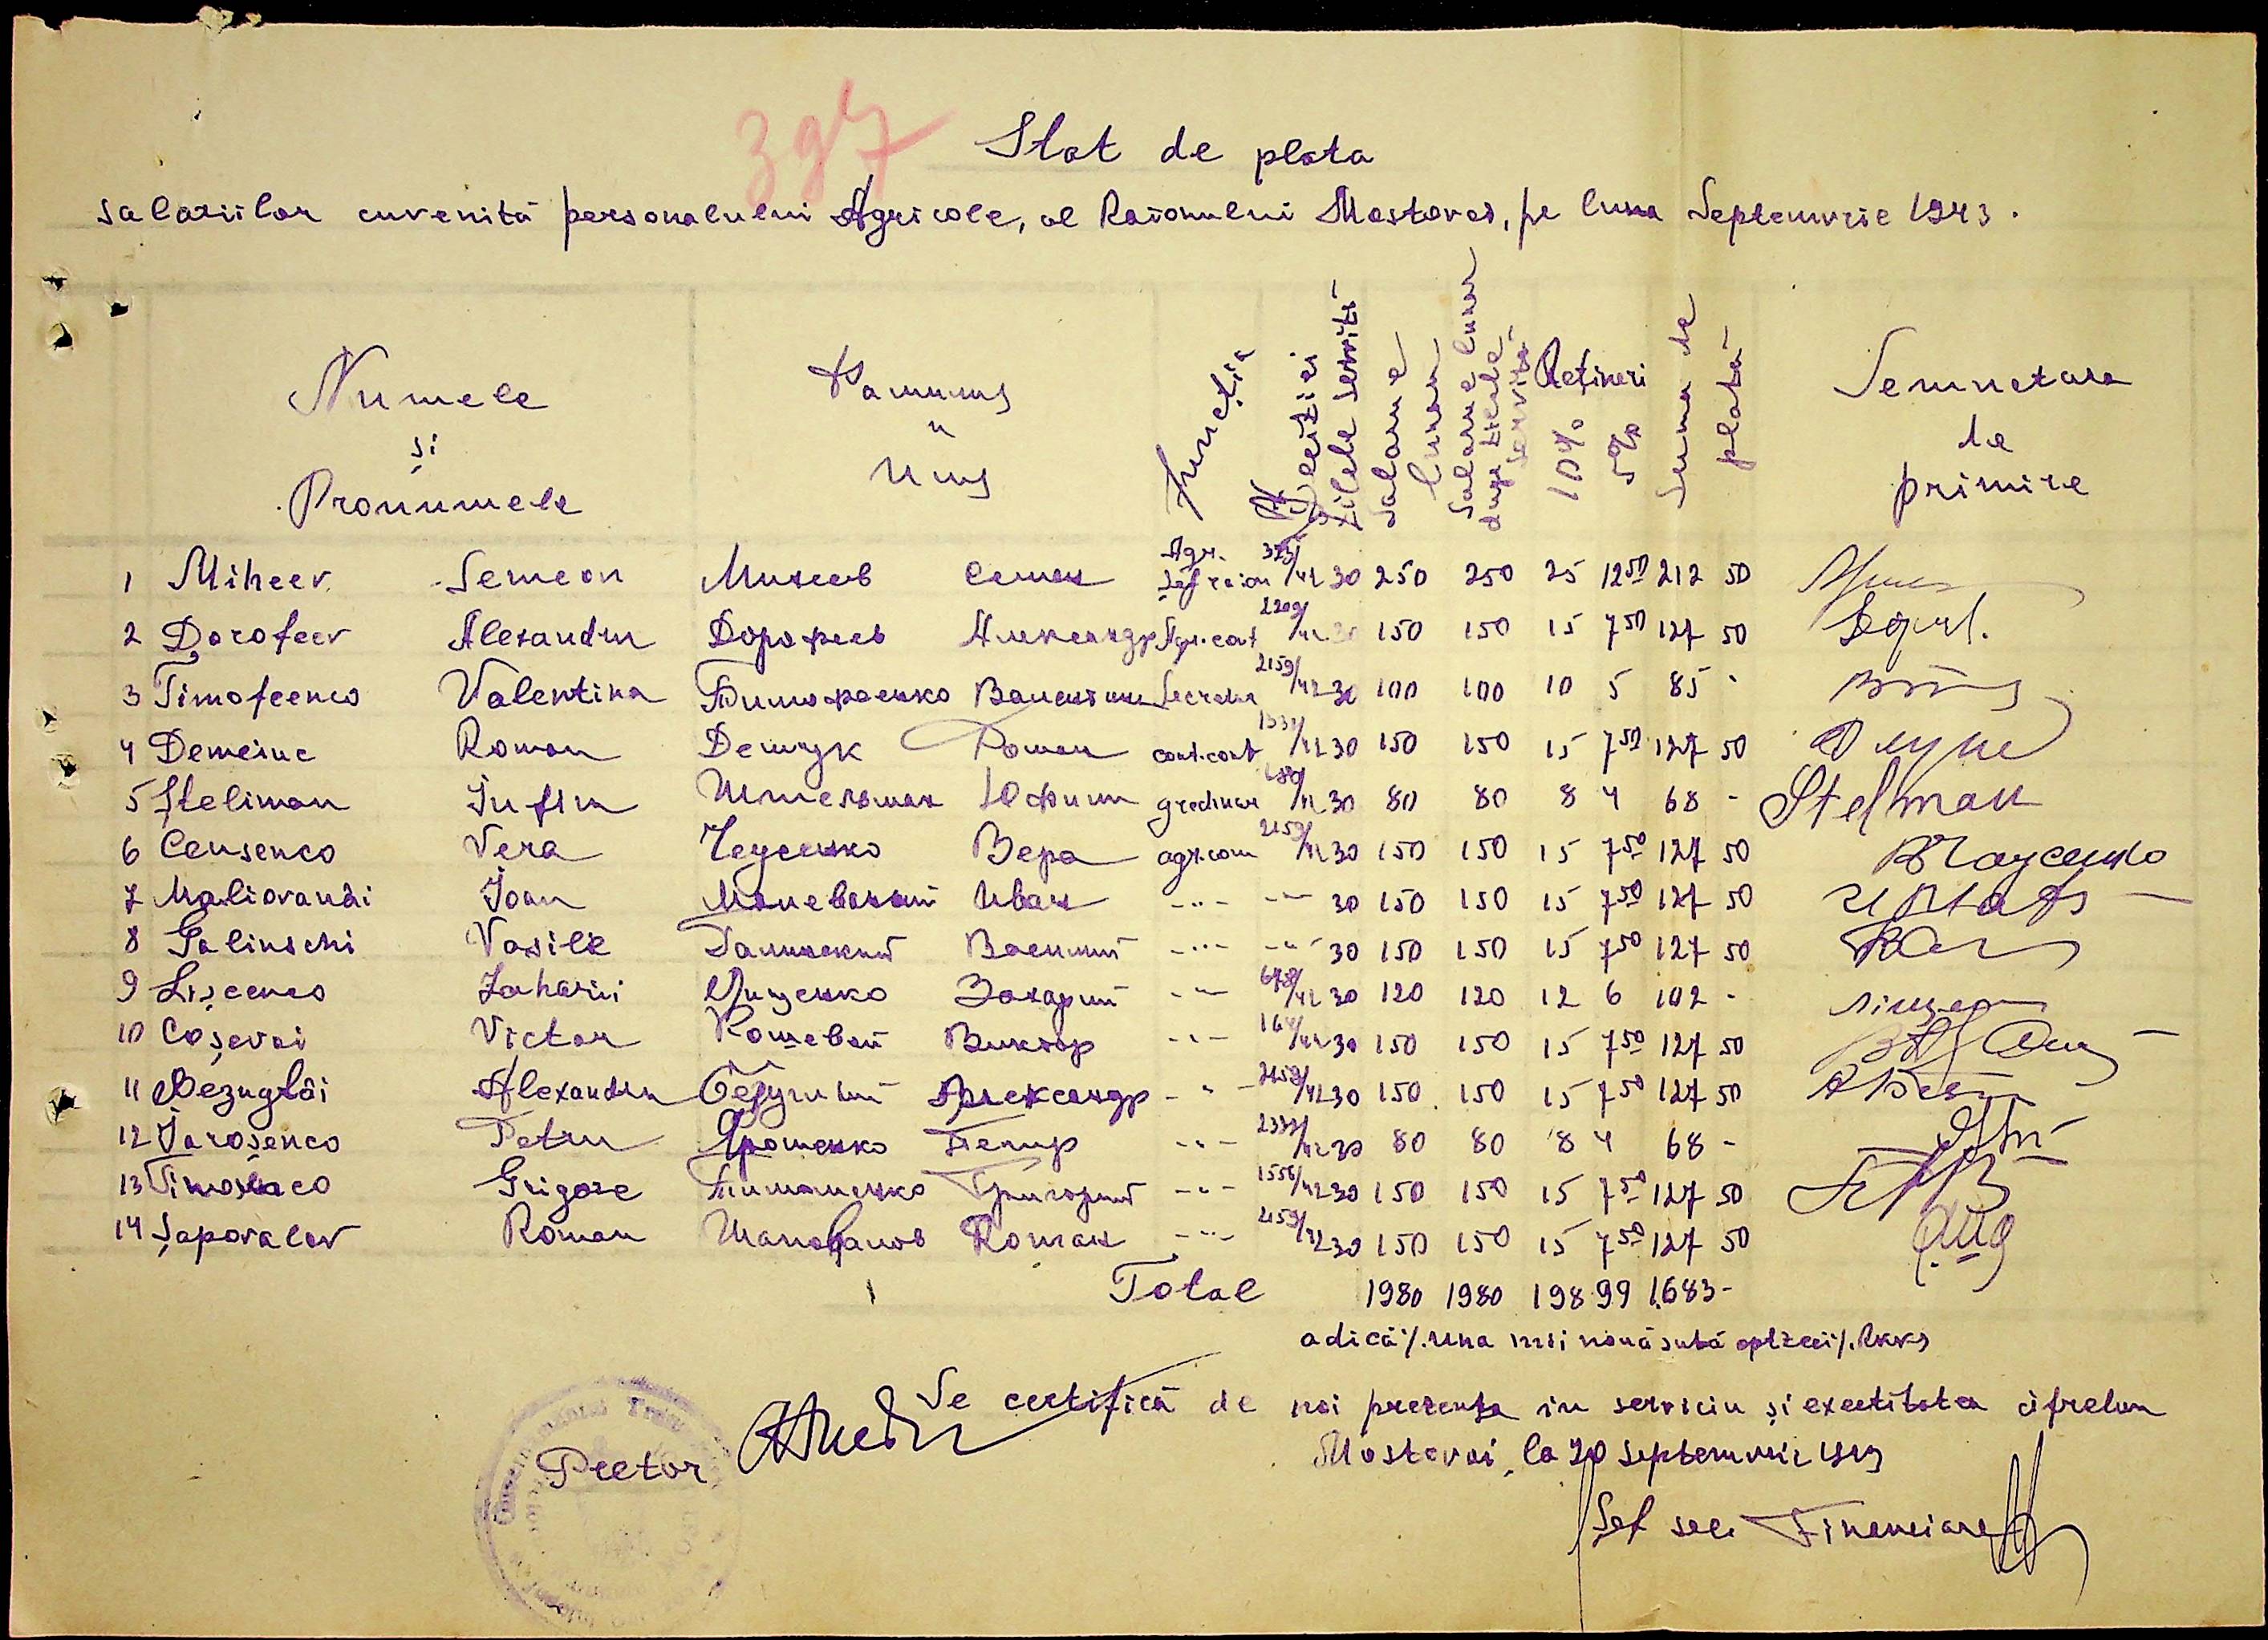 397
Stat de plata
salariilor cuvenită personalului Agricole, al Raionului Mostovoi, pe luna Septemvrie 1943.
Numele și Pronumele
Фамилия и Имя
Funcția
zilele servite
Salariu lunar
Salariu lunar după zilele servite
Rețineri
10% 5%
Suma de plată
Semnetara de primire
1 Miheev Semeon Михеев Семен Agr. șef raion 30 250 250 25 12 50 212 50
2 Dorofeev Alexandru Дорофеев Александр Agr. cont 30 150 150 15 7 50 127 50
3 Timofeenco Valentina Тимофеенко Валентина Secretar 2159/42 30 100 100 10 5 85 -
4 Demciuc Roman Демчук Роман cont. cont 30 150 150 15 7 50 127 50
5 Șteliman Iufim Штельман Юфим gredinar 30 80 80 8 4 68 - Stelman
6 Ceusenco Vera Чеусенко Вера agr. com 2159/42 30 150 150 15 7 50 127 50 В Чаусенко
7 Maliovanâi Ioan Малеваный Иван -"- -"- 30 150 150 15 7 50 127 50
8 Galinschi Vasile Галинский Василий -"- -"- 30 150 150 15 7 50 127 50
9 Lișcenco Zaharii Лищенко Захарий -"- 30 120 120 12 6 102 -
10 Coșevoi Victor Кошевой Виктор -"- 30 150 150 15 7 50 127 50
11 Bezuglâi Alexandru Безуглый Александр -"- 30 150 150 15 7 50 127 50
12 Iaroșenco Petru Ярошенко Петр -"- 30 80 80 8 4 68 -
13 Grigore Тимошенко Григорий -"- 1556/42 30 150 150 15 7 50 127 50
14 Șapovalov Roman Шаповалов Роман -"- 2159/42 30 150 150 15 7 50 127 50
Total 1980 1980 198 99 1683-
adică ./. una mii nouă sută optzeci ./. Rkks
Se certifică de noi prezența in serviciu și exectitatea cifrelor
Mostovoi, la 20 septemvrie 1943
Pretor
Șef sec. Financiare